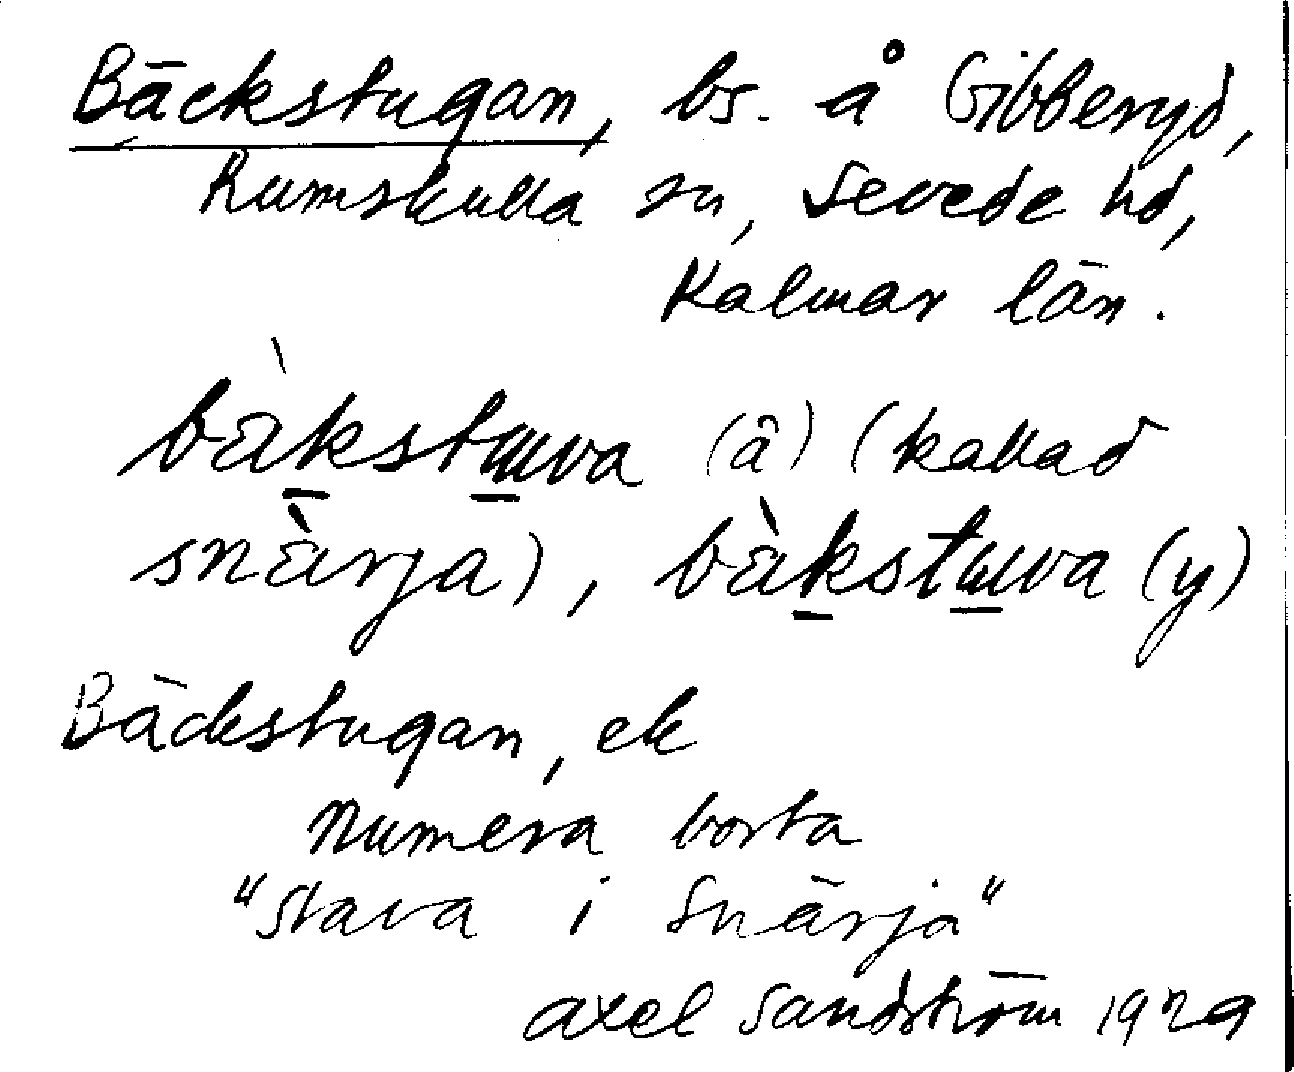 Bäckstugan, bs. å Gibberyd,
Rumskulla sn, Sevede hd,
Kalmar län.
bàkstuva (å) (kallad
snàrja), bàkstuva (y)
Bäckstugan, ek
numera borta
"Stava i Snärja"
Axel Sandström 1929